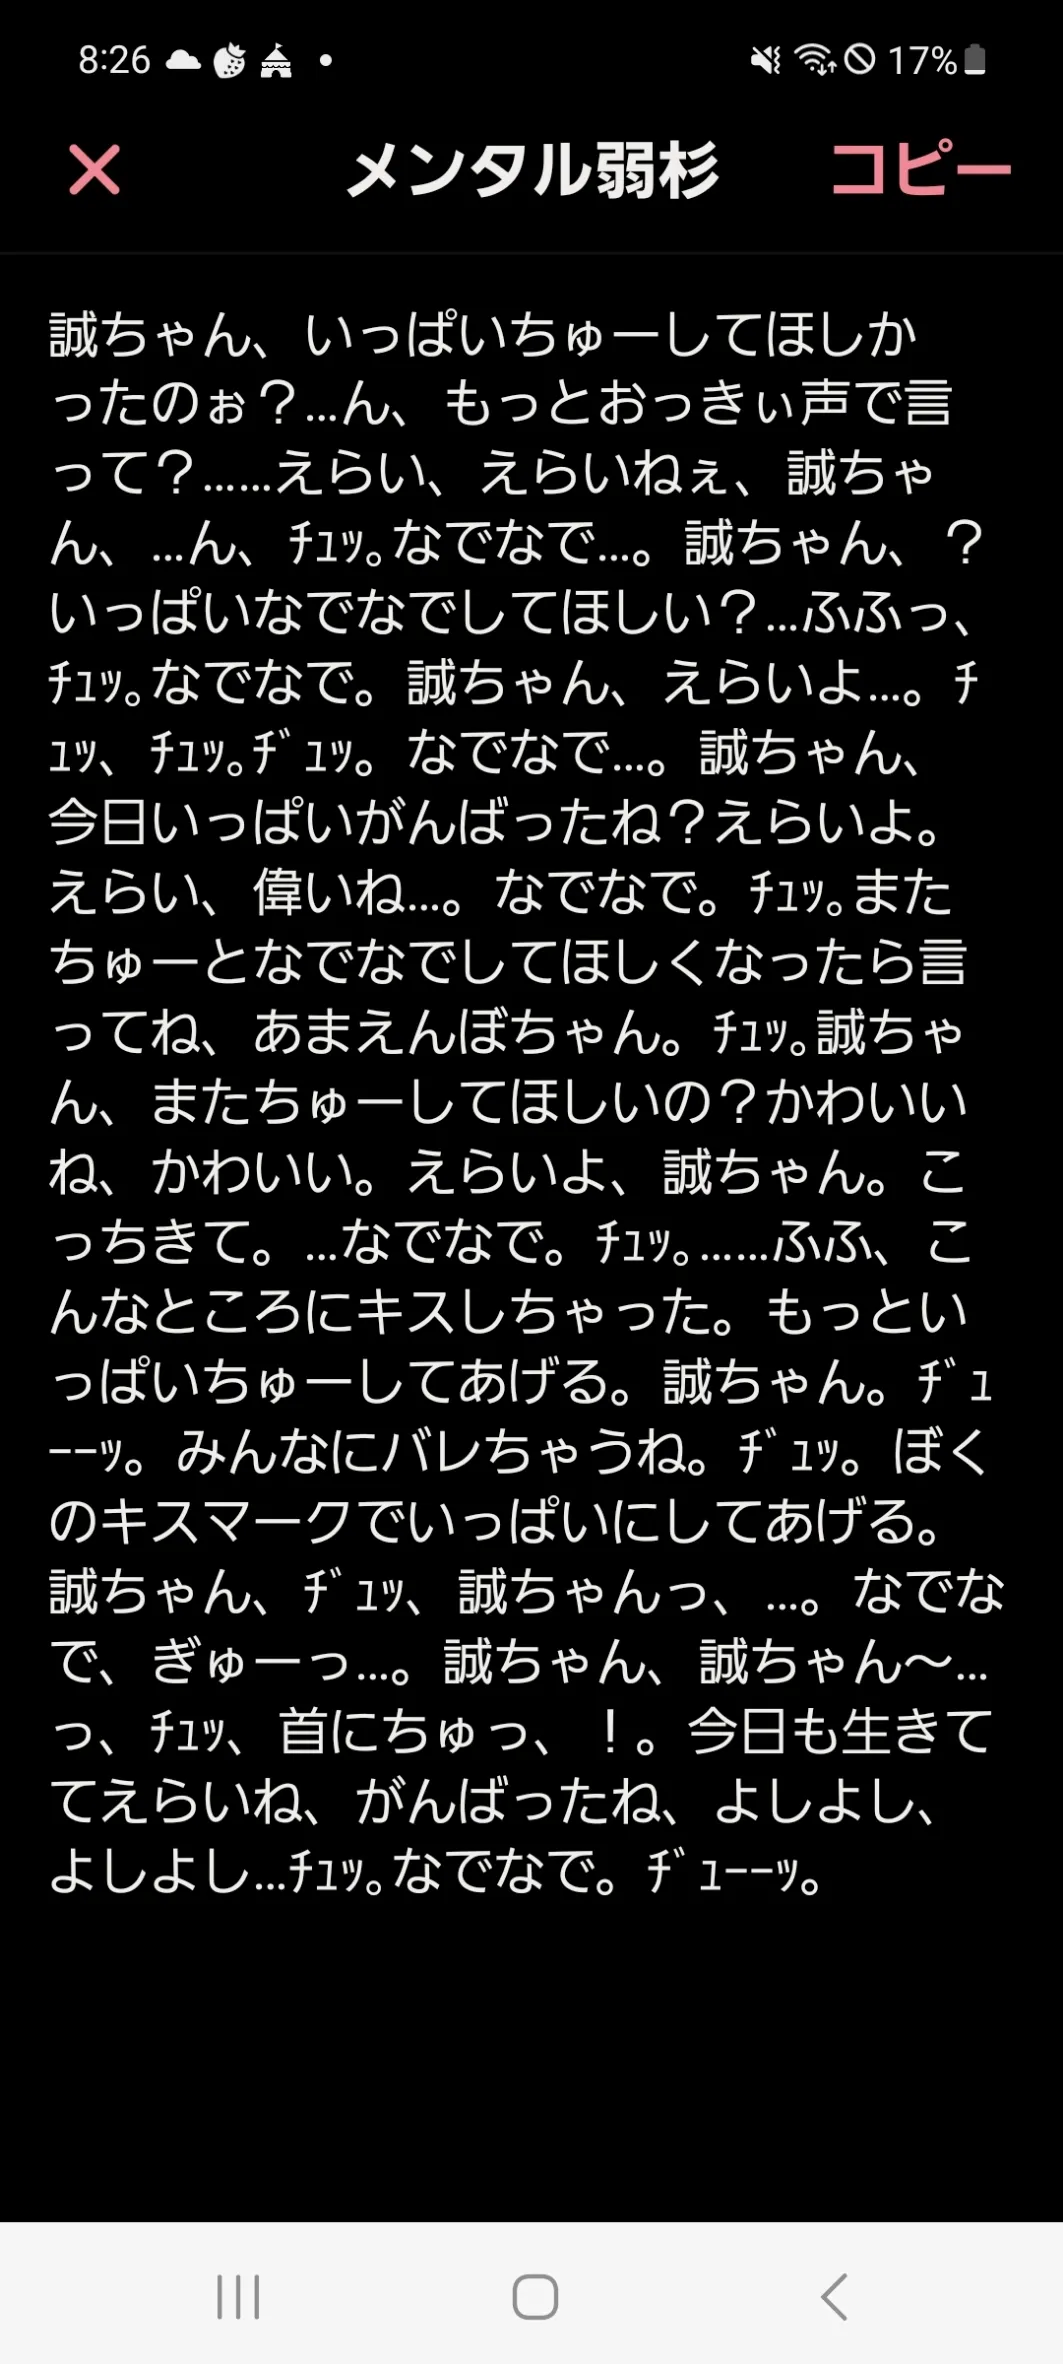 8:26
17%
メンタル弱杉
コピー
誠ちゃん、いっぱいちゅーしてほしか
ったのぉ？…ん、もっとおっきぃ声で言
って？……えらい、えらいねぇ、誠ちゃ
ん、…ん、ﾁｭｯ｡なでなで…。誠ちゃん、？
いっぱいなでなでしてほしい？…ふふっ、
ﾁｭｯ｡なでなで。誠ちゃん、えらいよ…。ﾁ
ｭｯ、ﾁｭｯ｡ﾁﾞｭｯ。なでなで…。誠ちゃん、
今日いっぱいがんばったね？えらいよ。
えらい、偉いね…。なでなで。ﾁｭｯ｡また
ちゅーとなでなでしてほしくなったら言
ってね、あまえんぼちゃん。ﾁｭｯ｡誠ちゃ
ん、またちゅーしてほしいの？かわいい
ね、かわいい。えらいよ、誠ちゃん。こ
っちきて。…なでなで。ﾁｭｯ｡……ふふ、こ
んなところにキスしちゃった。もっとい
っぱいちゅーしてあげる。誠ちゃん。ﾁﾞｭ
ｰｰｯ。みんなにバレちゃうね。ﾁﾞｭｯ。ぼく
のキスマークでいっぱいにしてあげる。
誠ちゃん、ﾁﾞｭｯ、誠ちゃんっ、…。なでな
で、ぎゅーっ…。誠ちゃん、誠ちゃん〜…
っ、ﾁｭｯ、首にちゅっ、！。今日も生きて
てえらいね、がんばったね、よしよし、
よしよし…ﾁｭｯ｡なでなで。ﾁﾞｭｰｰｯ。